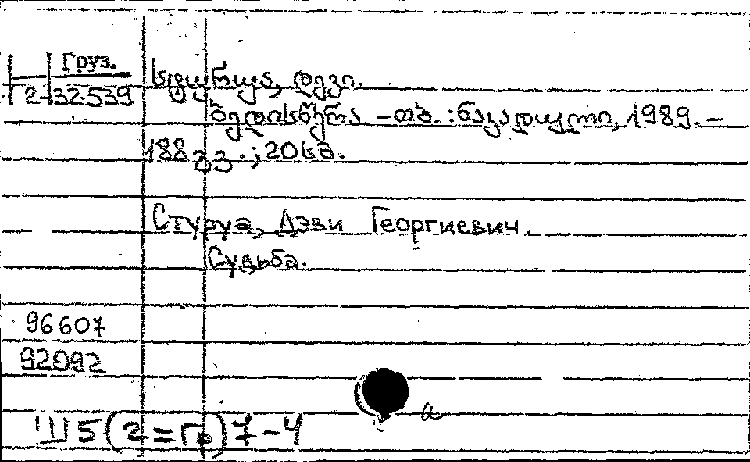 Груз.
2-32539
სტურუა, დევი.
ბედისწერა – თბ. : ნაკადული, 1989. –
188 გვ. ; 20 სმ.
Стуруа, Дэви Георгиевич.
Судьба.
96607
92092
Ш5(2=Гр)7-4
а